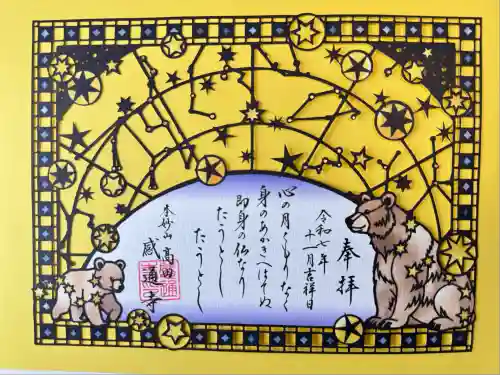 奉拝
令和七年
十一月吉祥日
心の月くもりなく
身のあかきへはてぬ
即身の仏なり
たうとし
たうとし
本妙山高田
感通寺